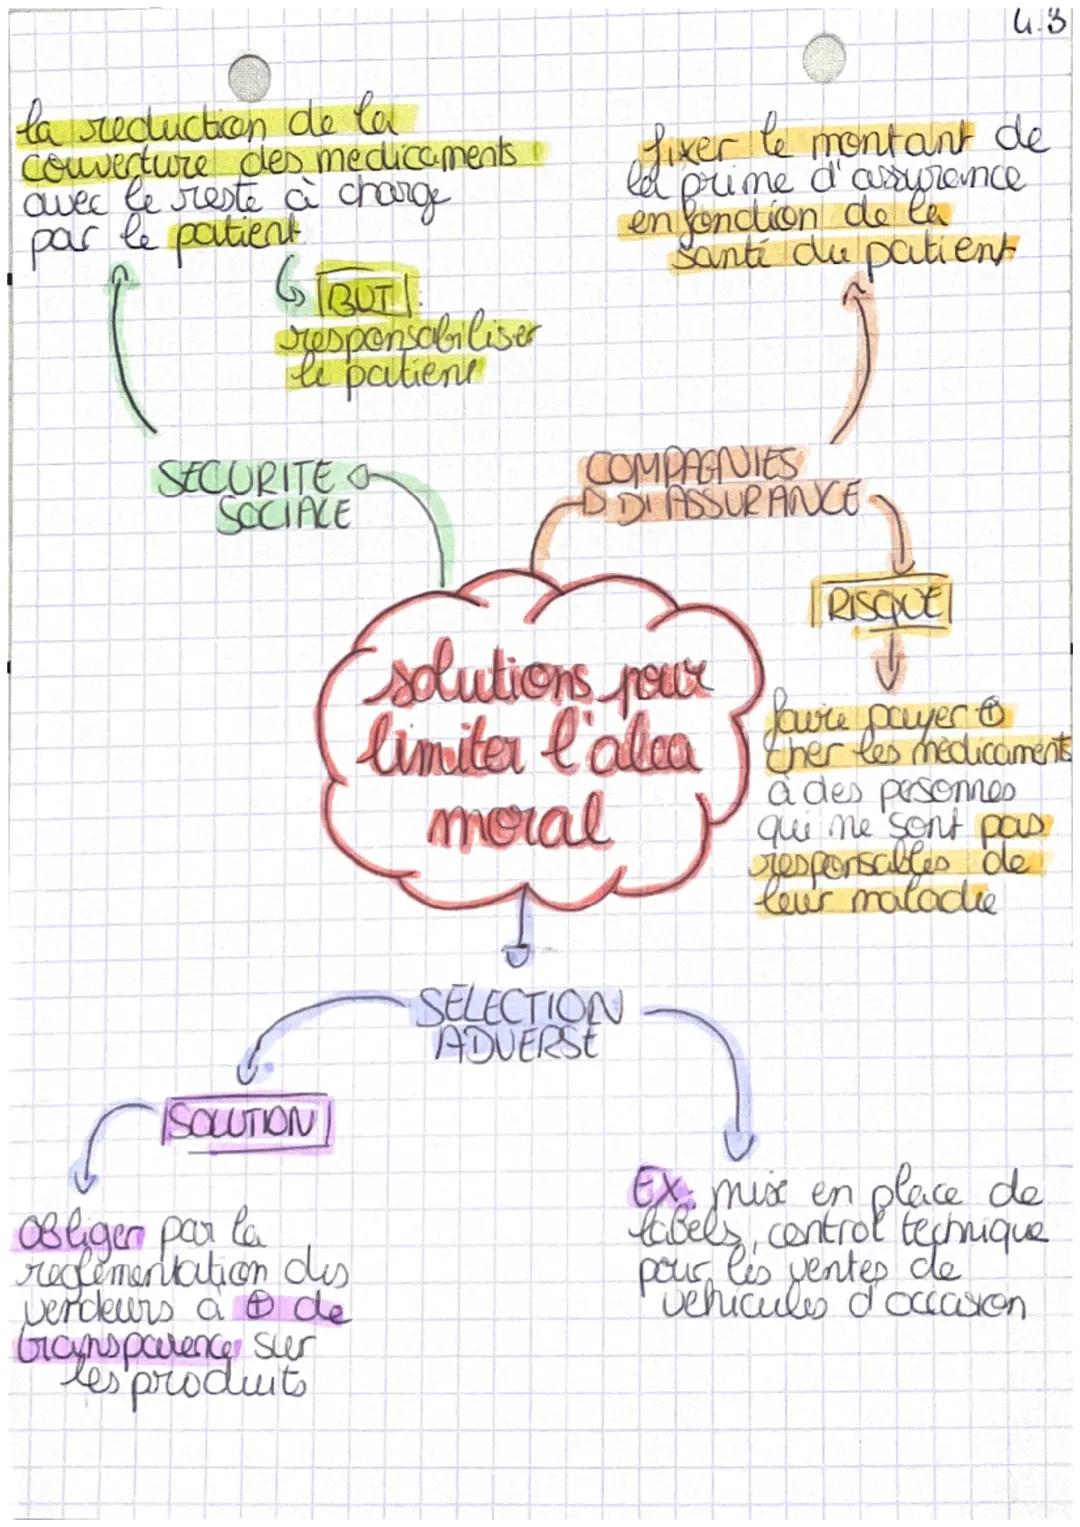 4.3
la reduction de la
couverture des medicaments
avec le reste à charge
par le patient
BUT :
responsabiliser
le patient
fixer le montant de
la prime d'assurance
en fonction de la
santé du patient
SECURITE
SOCIALE
COMPAGNIES
D'ASSURANCE
RISQUE
faire payer ⊕
cher les médicaments
à des personnes
qui ne sont pas
responsables de
leur maladie
solutions pour
limiter l'alea
moral
SELECTION
ADVERSE
SOLUTION
obliger par la
reglementation des
vendeurs à ⊕ de
transparence sur
les produits
EX: mise en place de
labels, control technique
pour les ventes de
vehicules d'occasion